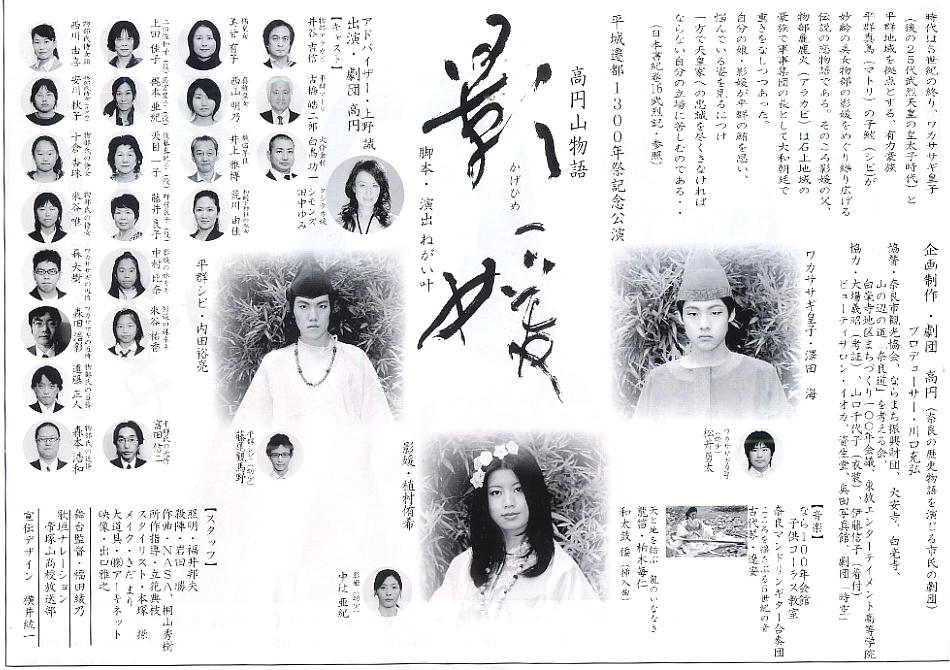 時代は5世紀の終り、ワカササギ皇子
(後の25代武烈天皇の皇太子時代)と
平群地域を拠点とする、有力豪族
平群真鳥(マトリ)の子鮪(シビ)が
妙齢の美女物部の影媛をめぐり繰り広げる
伝説の恋物語である。そのころ影媛の父、
物部麁鹿火(アラカビ)は石上地域の
豪族で軍事集団の長として大和朝廷で
重きをなしつつあった。
自分の娘・影媛が平群の鮪を思い、
悩んでいる姿を見るにつけ
一方で天皇家への忠誠を尽くさなければ
ならない自分の立場に苦しむのである・・
(日本書紀巻16武烈記・参照)
平城遷都1300年祭記念公演
高円山物語
影媛
かげひめ
脚本・演出 ねがい叶
アドバイザー・上野 誠
出演・劇団 高円
【キャスト】
企画制作・劇団 高円(奈良の歴史物語を演じる市民の劇団)
プロデューサー・川口克弘
協賛・奈良市観光協会、ならまち振興財団、大安寺、白毫寺、
山の辺の道「奈良道」を考える会、
白毫寺地区まちづくり一〇〇年会議、東放エンターテイメント高等学院
協力・大場義昭(考証)、山口千代子(衣装)、伊藤信子(着付)
ビューティサロン・イオカ、資生堂、奥田写真館、劇団「時空」
ワカササギ皇子・澤田 海
ワカササギ皇子
(幼少)
松井勇太
平群シビ・内田裕亮
平群シビ(幼少)
藤原観馬野
影媛・植村侑希
影媛(幼少)
中辻亜紀
井谷吉信
平群マトリ
古脇皓二郎
大伴金村
白鳥功一
クシラカ媛
シモンズ
田中ゆみ
美皆有子
西山明乃
井上雅博
荒川由佳
上田佳子
根本亜紀
天目一子
藤井良子
影媛の妹
中村比奈
米谷佑香
平群氏の従仲
富田信二
物部氏の侍女
西川由喜
安川秋子
物部氏の侍女
十倉香珠
物部氏の侍女
米谷唯
ワカササギの近侍
森大樹
ワカササギの近侍
森田浩彰
物部氏の近侍
道脇正人
物部氏の近侍
森本浩和
【音楽】
なら100年会館
子供コーラス教室
奈良マンドリンギター合奏団
こころを揺さぶる5世紀の音
古代琴・逢安
天と地を結ぶ 龍のいななき
龍笛・柏木每仁
和太鼓 倭(挿入曲)
【スタッフ】
照明・福井邦夫
殺陣・岩田 勝
作曲・NASA、桐山秀樹
所作指導・立花典枝
スタイリスト・本塚 操
メイク・きだ まり
大道具・㈱アーキネット
映像・出口雅之
舞台監督・福田綾乃
歌垣ナレーション
帝塚山高校放送部
宣伝デザイン 横井紘一